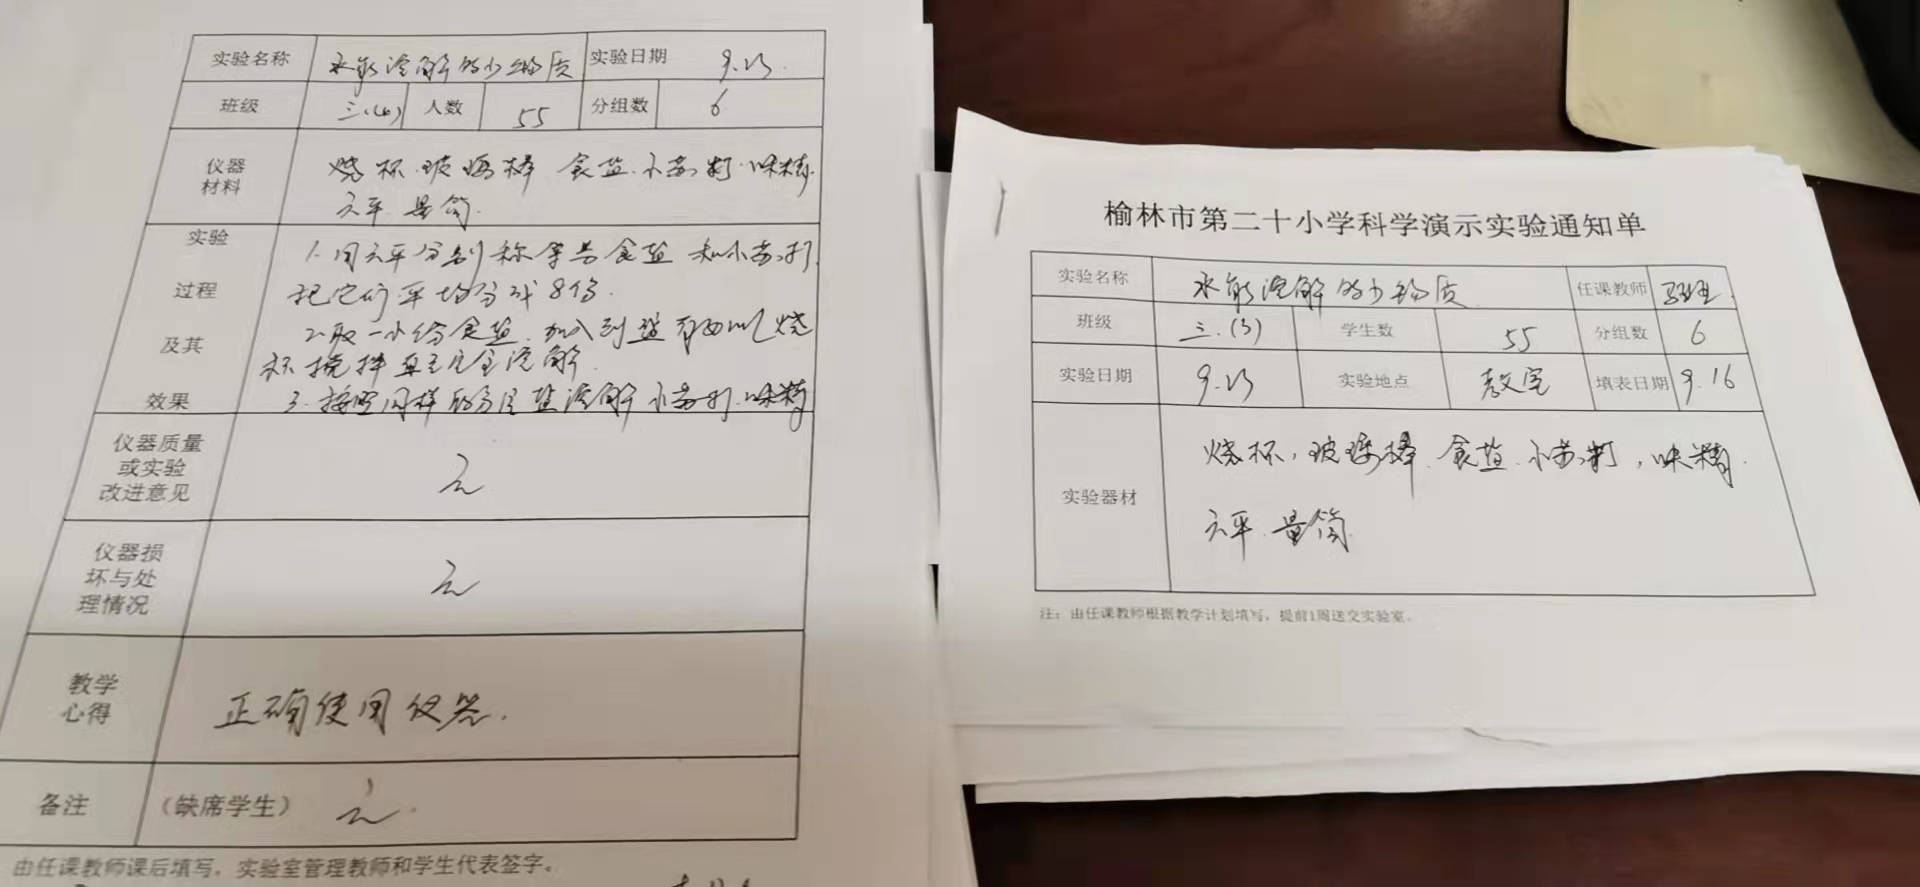 实验名称 水能溶解多少物质 实验日期 9.23.
班级 三.(6) 人数 55 分组数 6
仪器
材料
烧杯.玻璃棒.食盐.小苏打.味精.
天平.量筒.
实验
过程
及其
效果
1.用天平分别称等量食盐和小苏打,
把它们平均分成8份.
2.取一小份食盐.加入到盛有水的烧
杯搅拌直至完全溶解.
3.按照同样的方法溶解小苏打.味精
仪器质量
或实验
改进意见
无
仪器损
坏与处
理情况
无
教学
心得
正确使用仪器.
备注 (缺席学生) 无.
由任课教师课后填写,实验室管理教师和学生代表签字。
榆林市第二十小学科学演示实验通知单
实验名称 水能溶解多少物质 任课教师
班级 三.(3) 学生数 55 分组数 6
实验日期 9.23 实验地点 教室 填表日期 9.16
实验器材
烧杯,玻璃棒.食盐.小苏打,味精.
天平.量筒.
注:由任课教师根据教学计划填写,提前1周送交实验室。